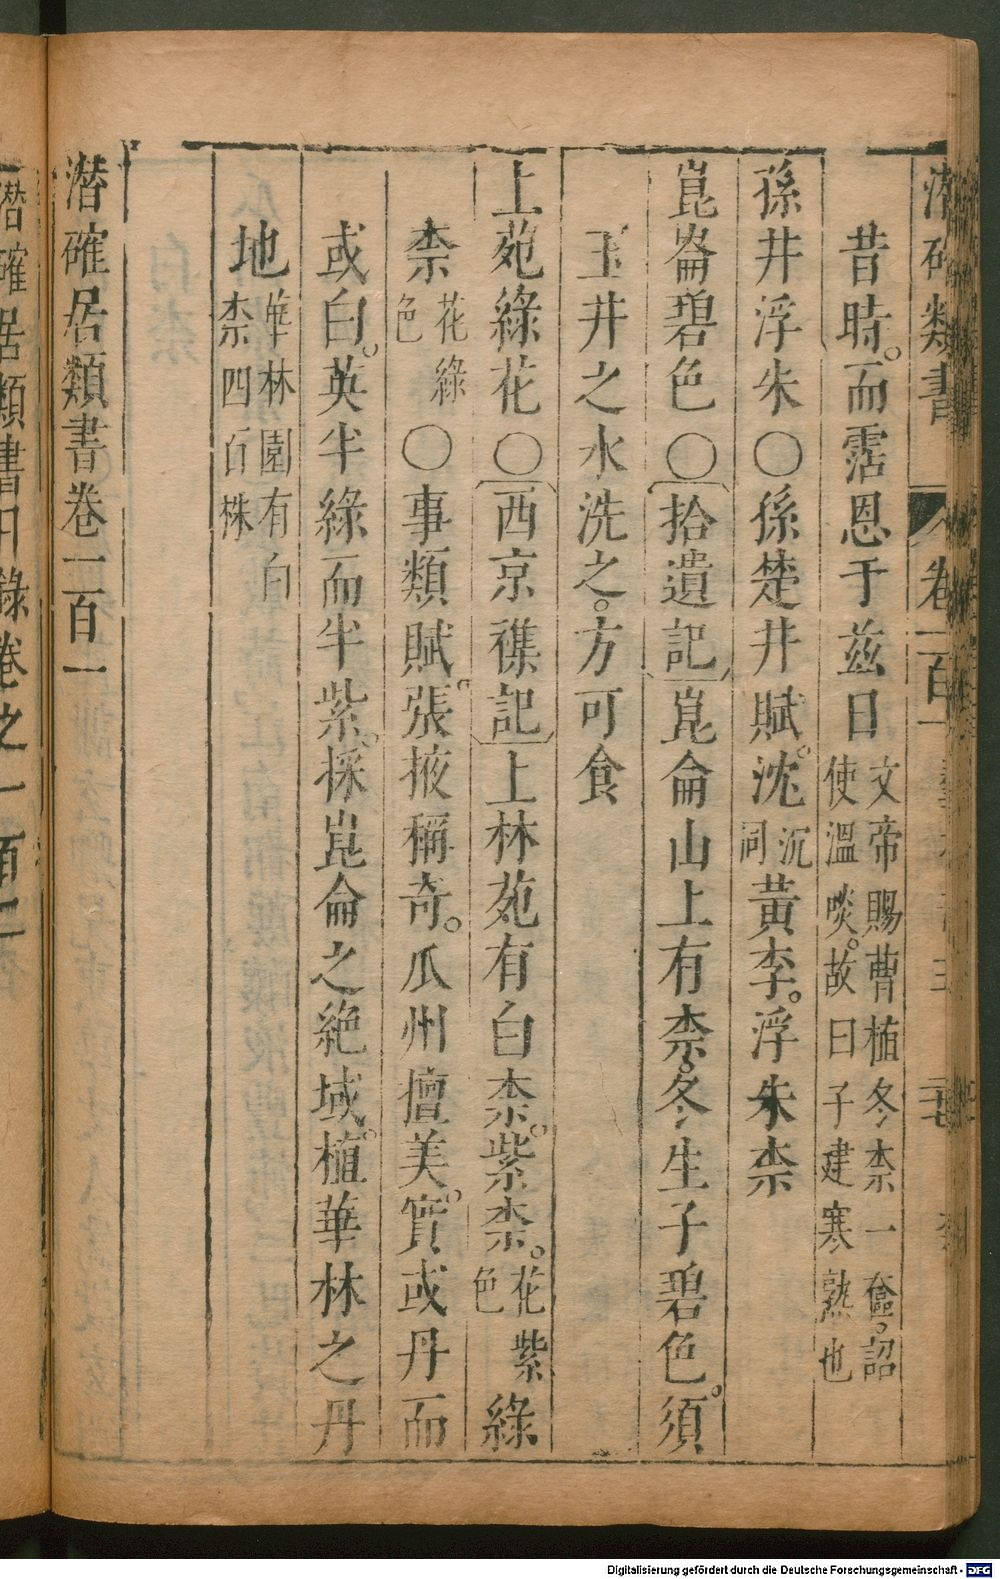 昔時。而霑恩于茲日文帝賜曹植冬柰一奩。詔使溫啖。故曰子建寒熟也
孫井浮朱○孫楚井賦。沈沉同黃李。浮朱柰
崑崙碧色○拾遺記崑侖山上有柰。冬生子碧色。須
玉井之水洗之。方可食
上苑綠花○西京襍記上林苑有白柰。紫柰。花紫色綠
柰花綠色○事類賦。張掖稱奇。瓜州擅美。實或丹而
或白。英半綠而半紫。採崑侖之絕域。植華林之丹
地華林園有白柰四百株
潛確居類書卷一百一
潛確居類書目錄卷之一百二
Digitalisierung gefördert durch die Deutsche Forschungsgemeinschaft - DFG